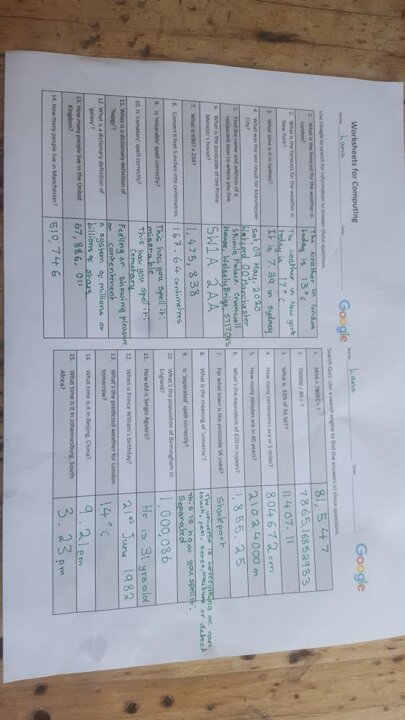 Worksheets for Computing
Name: hana Date:
Google
Use Google to search for information to answer these questions.
1. What is the forecast for the weather in London?
The weather in london today is 13°c
2. What is the forecast for the weather in New York?
The weather in New york today
3. What time is it in Sydney?
It is 7.39 in sydney
4. What was the last result for Manchester City?
Sat, 09 May, 2020
5. Find the name and address of a restaurant near to where you live.
Palace,
6. What is the postcode of the Prime Minister's house?
SW1A 2AA
7. What is 6307 x 234?
1,475,838
8. Convert 6 feet 5 inches into centimetres
167.64 centimetres
9. Is 'miserable' spelt correctly?
This how you spell it: miserable
10. Is 'cematary' spelt correctly?
This how you spell it: cemetary
11. What is a dictionary definition of 'happy'?
Feeling or showing pleasure or contentment
12. What is a dictionary definition of 'galaxy'?
a system of millions or billions of stars
13. How many people live in the United Kingdom?
67,886,011
14. How many people live in Manchester?
510,746
Name: hana Date:
Google
Search Quiz: Use a search engine to find the answers to these questions.
1.
81,547
2. 700000 / 89 = ?
7865.16853933
3. What is 33% of 34,567?
11407.11
4. How many centimetres are in 5 miles?
804672 cm
5. How many minutes are in 40 years?
21024000 m
6. What's the equivalent of £20 in rupees?
1,855.25
7. For what town is the postcode SK used?
Stockport
8. What is the meaning of 'universe'?
The universe is everything we can touch, feel, sense, measure or detect
9. Is 'separated' spelt correctly?
This is how you spell it: Separated
10. What's the population of Birmingham in England?
1,000,086
11. How old is Sergio Aguero?
He is 31 yrs old
12. When is Prince William's birthday?
21st June 1982
13. What's the predicted weather for London tomorrow?
14°c
14. What time is it in Beijing, China?
9.21pm
15. What time is it in Johannesburg, South Africa?
3.23pm